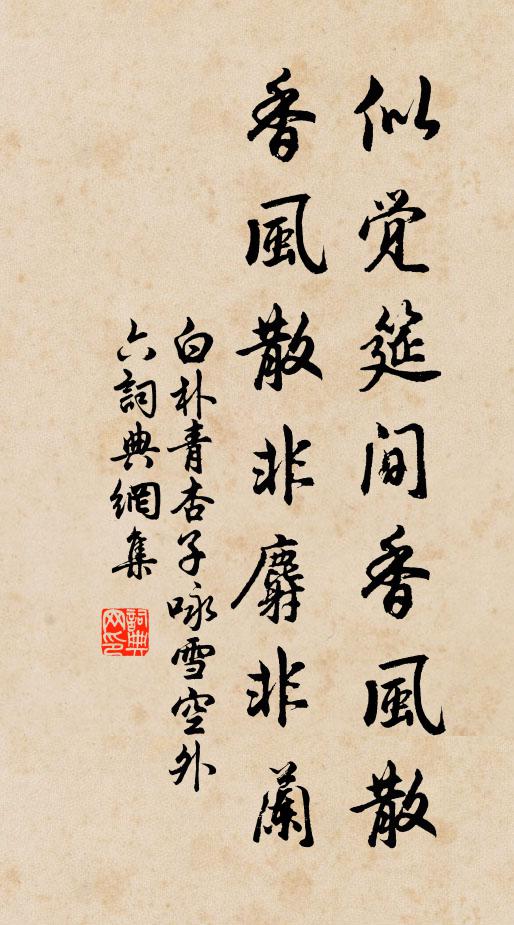 似覺筵間香風散
香風散非麝非蘭
白朴青杏子咏雪空外
六詞典網集
詞典
网印